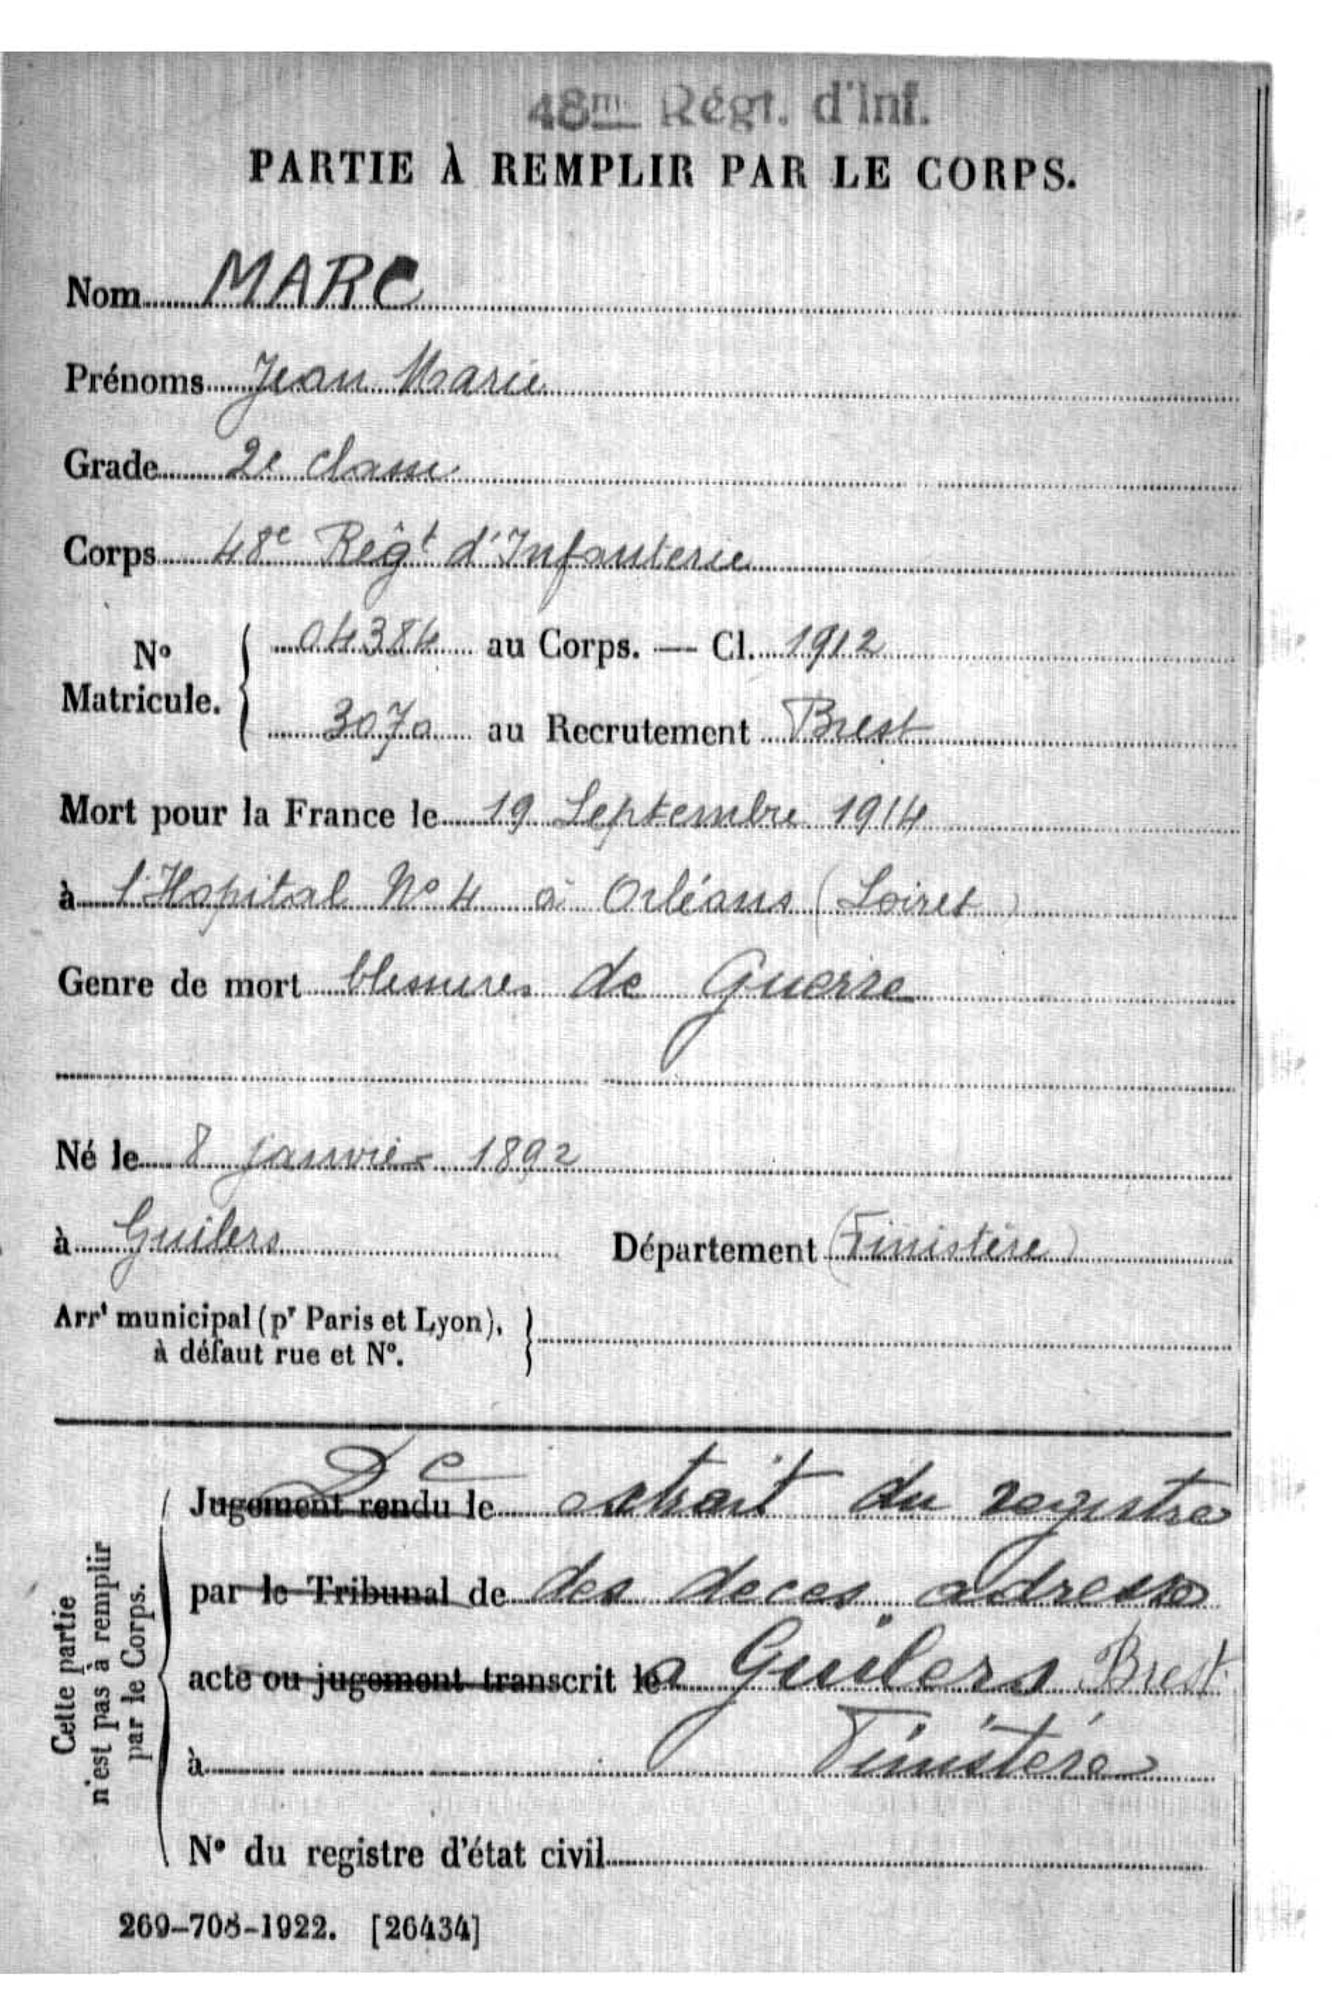 48me Régt. d'Inf.
PARTIE À REMPLIR PAR LE CORPS.
Nom MARC
Prénoms Jean Marie
Grade 2e classe
Corps 48e Régt d'Infanterie
No Matricule. 04384 au Corps. — Cl. 1912
3070 au Recrutement Brest
Mort pour la France le 19 Septembre 1914
à l'Hopital No 4 à Orléans (Loiret)
Genre de mort blessures de Guerre
Né le 8 janvier 1892
à Guilers Département (Finistère)
Arrt municipal (pr Paris et Lyon),
à défaut rue et No.
Cette partie
n'est pas à remplir
par le Corps.
Jugement rendu le extrait du registre
par le Tribunal de des deces adresse
acte ou jugement transcrit le a Guilers Brest
à Finistére
No du registre d'état civil
269-708-1922. [26434]